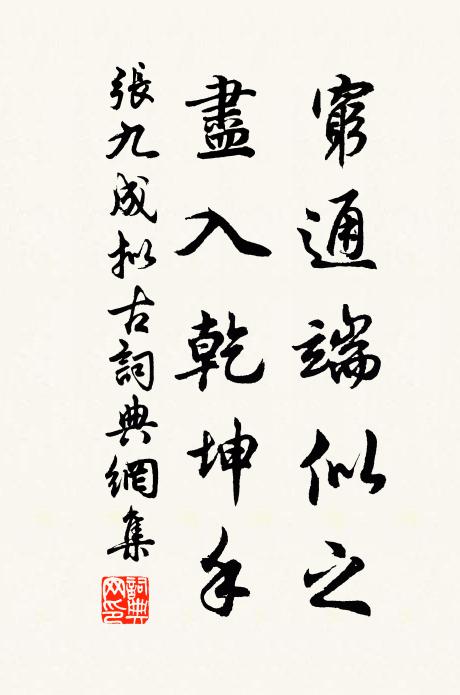 窮通端似之
盡入乾坤手
張九成拟古詞典網集
詞典网印